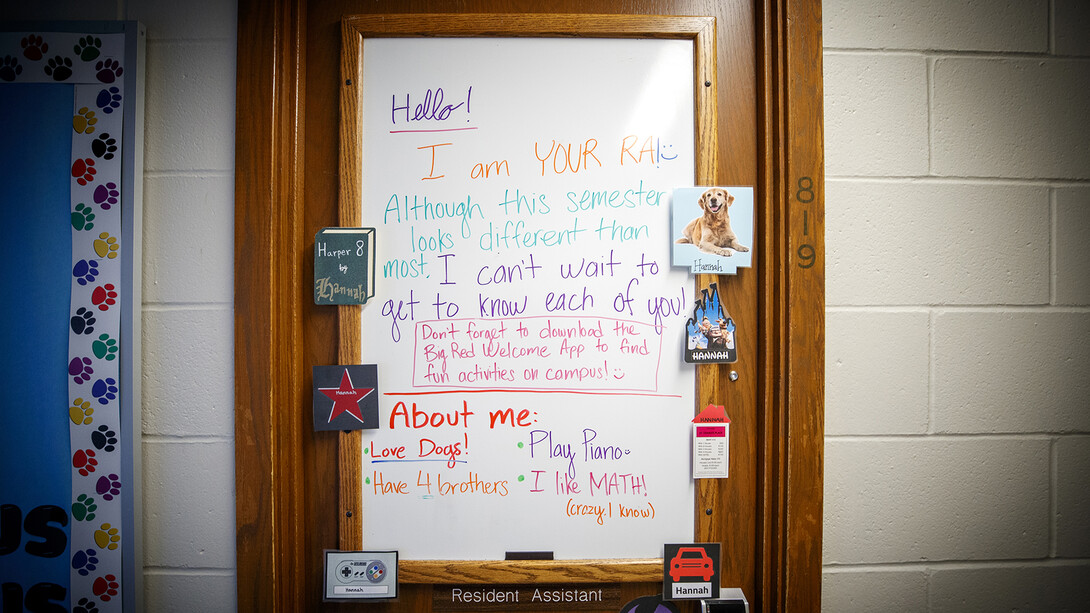 Hello!
I am YOUR RA!
Although this semester
looks different than
most. I can't wait to
get to know each of you!
Don't forget to download the
Big Red Welcome App to find
fun activities on campus!
About me:
• Love Dogs!
• Have 4 brothers
• Play Piano
• I like MATH!
(crazy. I know)
Harper 8
by
Hannah
Hannah
Hannah
Hannah
HANNAH
HANNAH
Hannah
819
Resident Assistant
US